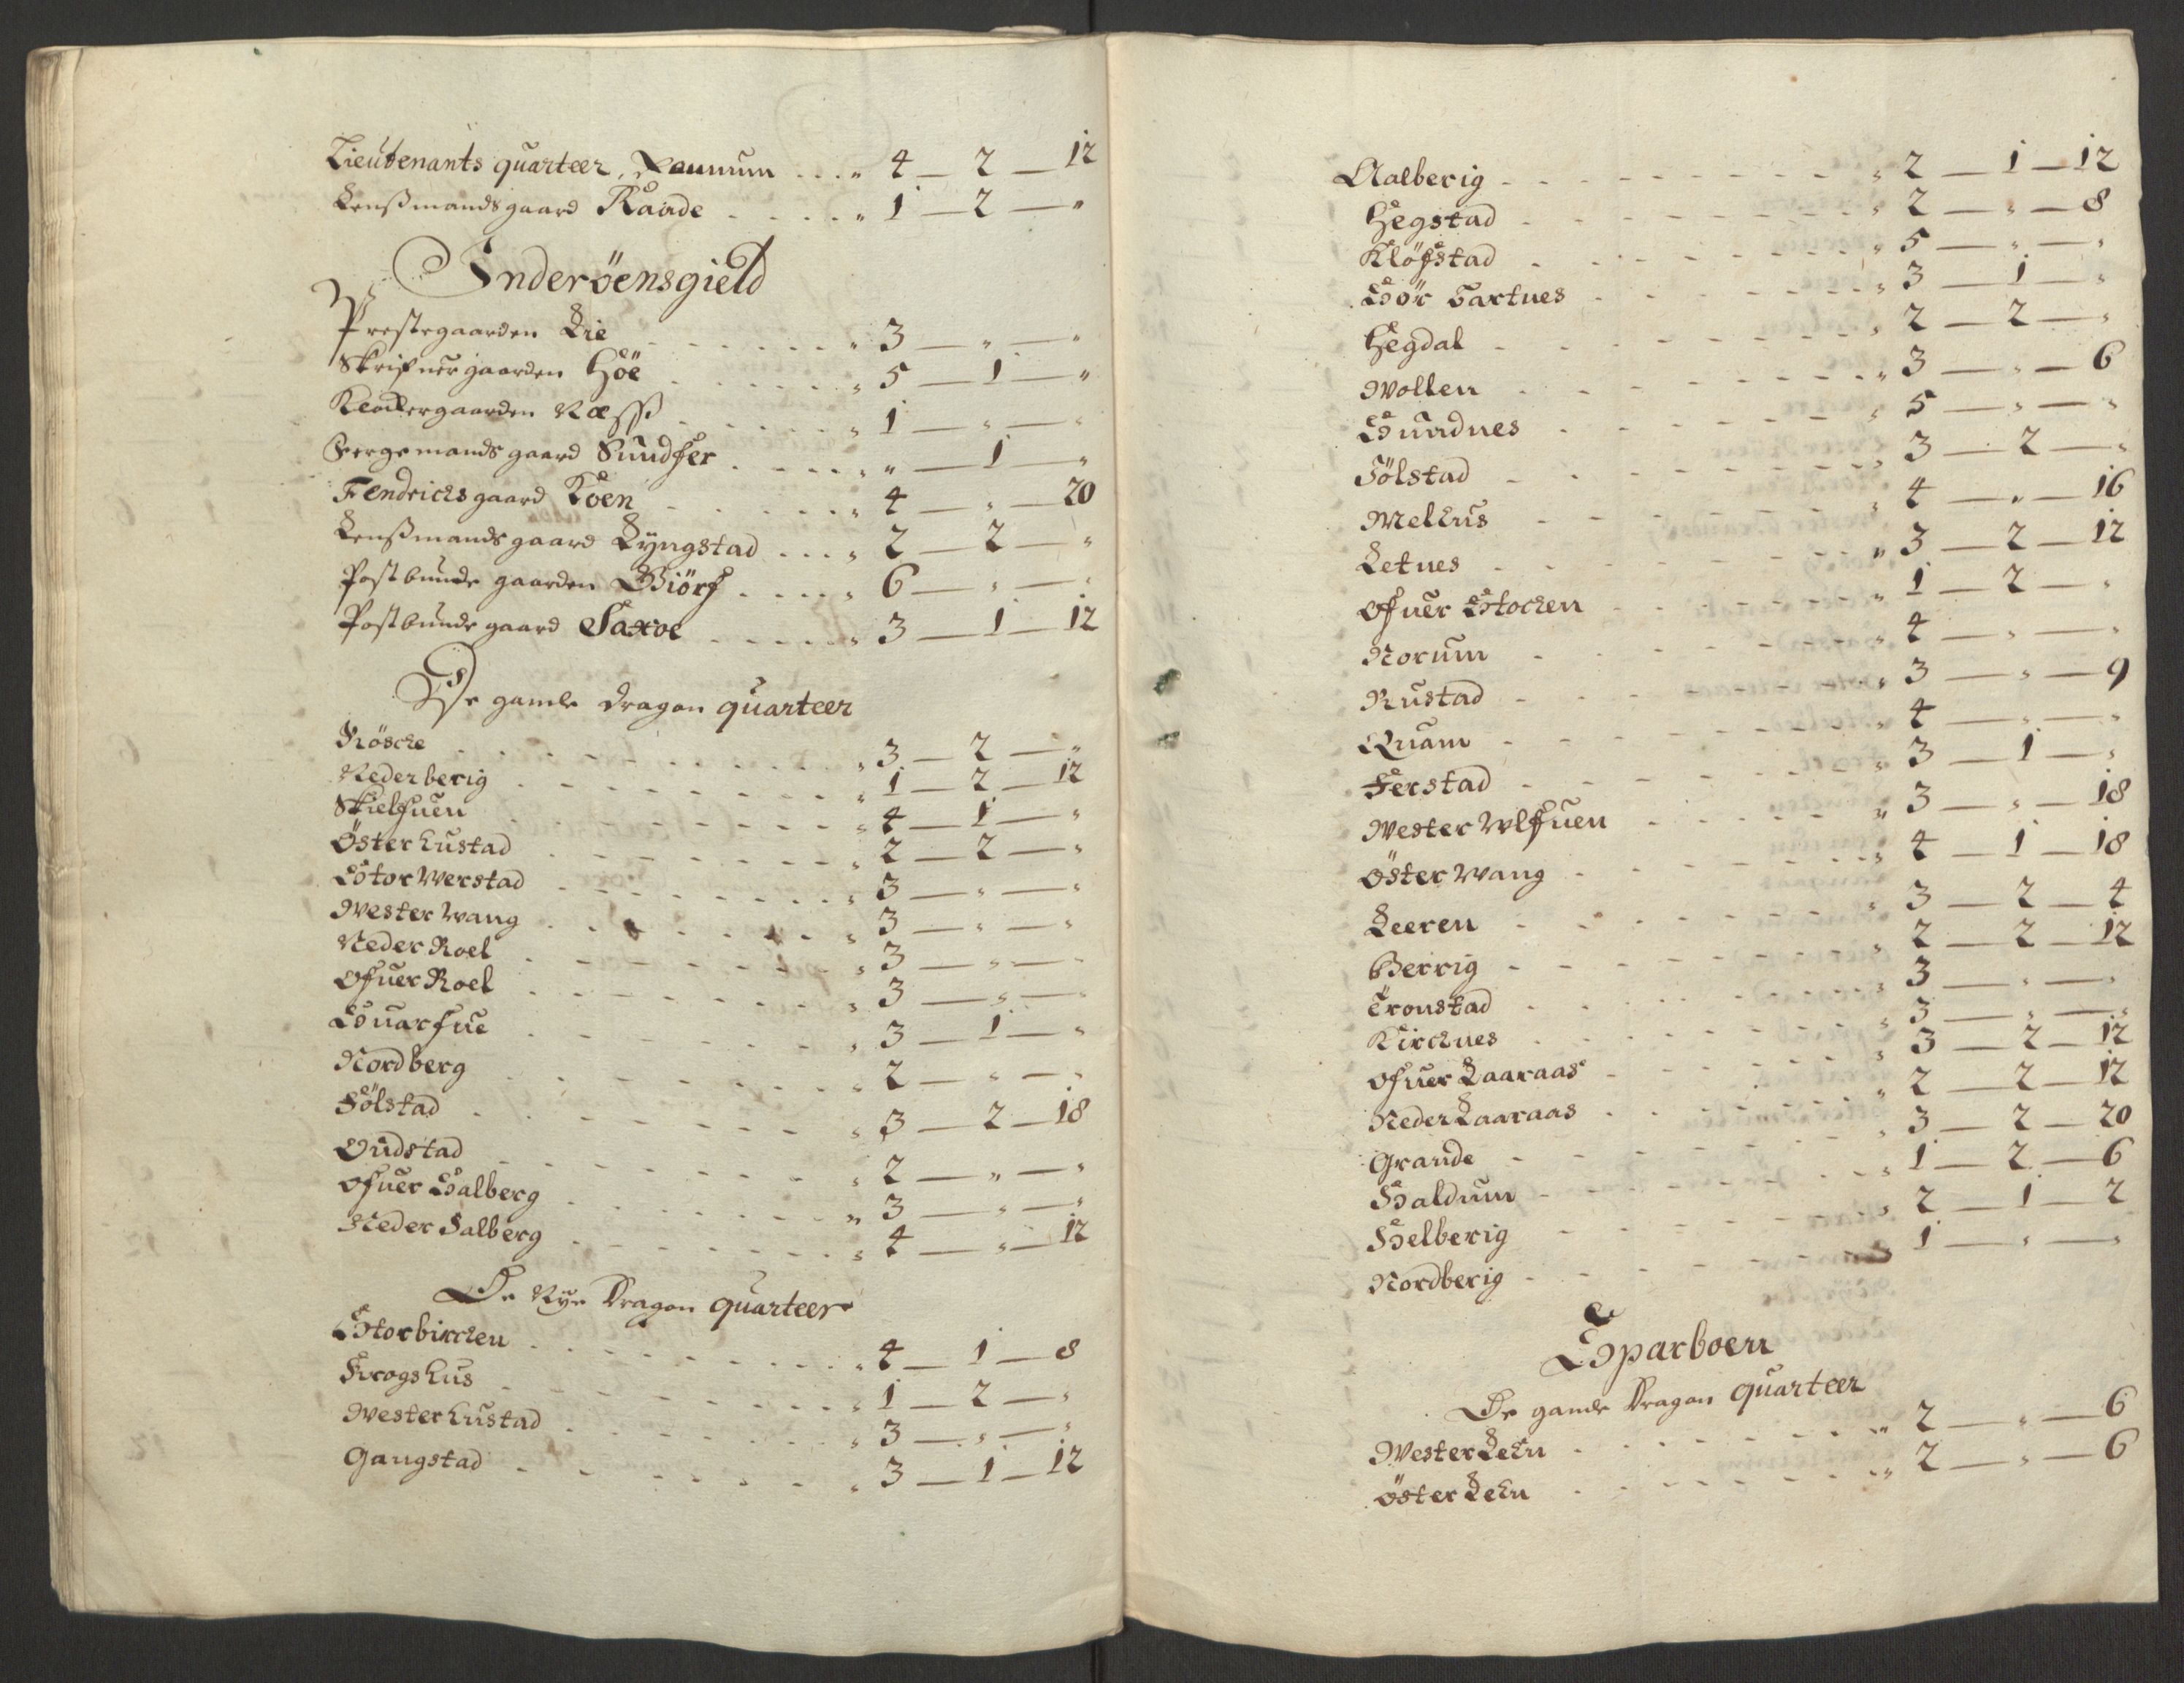 Lieutenants quarteer, Raumum .... „ 4 — 2 — 12
Lenßmands gaard Raade . . . . . „ 1 — 2 — „
Inderöensgield
Prestegaarden Lie . . . . . . . „ 3 — „ — „
Skrifuer gaarden Höe . . . . . . „ 5 — 1 — „
Klockergaarden Næss . . . . . . „ 1 — „ — „
Fergemands gaard Sundfer . . . . . „ „ — 1 — „
Fendrichs gaard Koen . . . . . . „ 4 — „ — 20
Lenßmands gaard Lyngstad . . . . „ 2 — 2 — „
Postbunde gaarden Biörf . . . . . „ 6 — „ — „
Postbunde gaard Saxoe . . . . . „ 3 — 1 — 12
De gamle Dragon quarteer
Röske . . . . . . . . . „ 3 — 2 — „
Nederberig . . . . . . . . „ 1 — 2 — 12
Skielfuen . . . . . . . . „ 4 — 1 — „
Öster hustad . . . . . . . . „ 2 — 2 — „
Stor Werstad . . . . . . . . „ 3 — „ — „
Wester Wang . . . . . . . . „ 3 — „ — „
Neder Roel . . . . . . . . „ 3 — „ — „
Ofuer Roel . . . . . . . . „ 3 — „ — „
Suarfue . . . . . . . . „ 3 — 1 — „
Nordberg . . . . . . . . „ 2 — „ — „
Fölstad . . . . . . . . „ 3 — 2 — 18
Oudstad . . . . . . . . „ 2 — „ — „
Ofuer Salberg . . . . . . . „ 3 — „ — „
Neder Salberg . . . . . . . „ 4 — „ — 12
De Nye Dragon quarteer
Storbirchen . . . . . . . . „ 4 — 1 — 8
Frogshus . . . . . . . . „ 1 — 2 — „
Wester hustad . . . . . . . „ 3 — „ — „
Gangstad . . . . . . . . „ 3 — 1 — 12
Aalberig . . . . . . . . „ 2 — 1 — 12
Hegstad . . . . . . . . „ 2 — „ — 8
Klöfstad . . . . . . . . „ 5 — „ — „
Sör Sartnes . . . . . . . „ 3 — 1 — „
Hegdal . . . . . . . . „ 2 — 2 — „
Wollen . . . . . . . . „ 3 — „ — 6
Sundnes . . . . . . . . „ 5 — „ — „
Fölstad . . . . . . . . „ 3 — 2 — „
Melhus . . . . . . . . „ 4 — „ — 16
Letnes . . . . . . . . „ 3 — 2 — 12
Ofuer Stochen . . . . . . . „ 1 — 2 — „
Norum . . . . . . . . „ 4 — „ — „
Rustad . . . . . . . . „ 3 — „ — 9
Quam . . . . . . . . „ 4 — „ — „
Ferstad . . . . . . . . „ 3 — 1 — „
Wester Wlfuen . . . . . . „ 3 — „ — 18
Öster Wang . . . . . . . „ 4 — 1 — 18
Leeren . . . . . . . . „ 3 — 2 — 4
Berrig . . . . . . . . „ 2 — 2 — 12
Tronstad . . . . . . . . „ 3 — „ — „
Kirchnes . . . . . . . . „ 3 — „ — „
Ofuer Laaraas . . . . . . . „ 3 — 2 — 12
Neder Laaraas . . . . . . . „ 2 — 2 — 12
Grande . . . . . . . . „ 3 — 2 — 20
Haldum . . . . . . . . „ 1 — 2 — 6
Helberig . . . . . . . . „ 2 — 1 — 2
Nordberig . . . . . . . . 1 — „ — „
Sparboen
De gamle Dragon quarteer
Wester Lehn . . . . . . . „ 2 — „ — 6
Öster Lehn . . . . . . . „ 2 — „ — 6